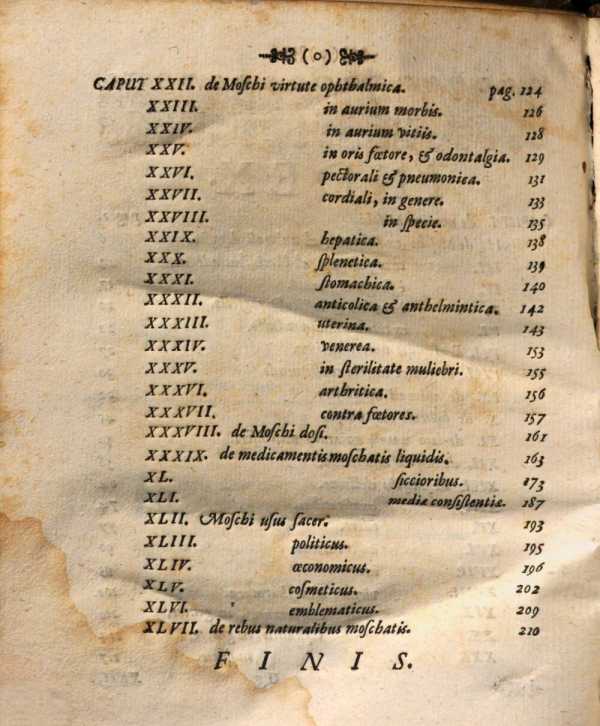 (o)
CAPUT XXII. de Moſchi virtute ophthalmica. pag. 124
XXIII. in aurium morbis. 126
XXIV. in aurium vitiis. 128
XXV. in oris fœtore, & odontalgia. 129
XXVI. pectorali & pneumonica. 131
XXVII. cordiali, in genere. 133
XXVIII. in ſpecie. 135
XXIX. hepatica. 138
XXX. ſplenetica. 139
XXXI. ſtomachica. 140
XXXII. anticolica & anthelmintica. 142
XXXIII. uterina. 143
XXXIV. venerea. 153
XXXV. in ſterilitate muliebri. 155
XXXVI. arthritica. 156
XXXVII. contra fœtores. 157
XXXVIII. de Moſchi doſi. 161
XXXIX. de medicamentis moſchatis liquidis. 163
XL. ſiccioribus. 173
XLI. mediæ conſiſtentiæ. 187
XLII. Moſchi uſus ſacer. 193
XLIII. politicus. 195
XLIV. œconomicus. 196
XLV. coſmeticus. 202
XLVI. emblematicus. 209
XLVII. de rebus naturalibus moſchatis. 210
FINIS.